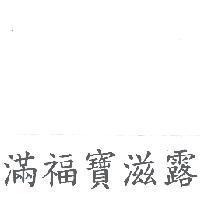 滿福寶滋露